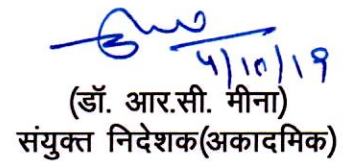 4/10/19
(डॉ. आर.सी. मीना)
संयुक्त निदेशक(अकादमिक)